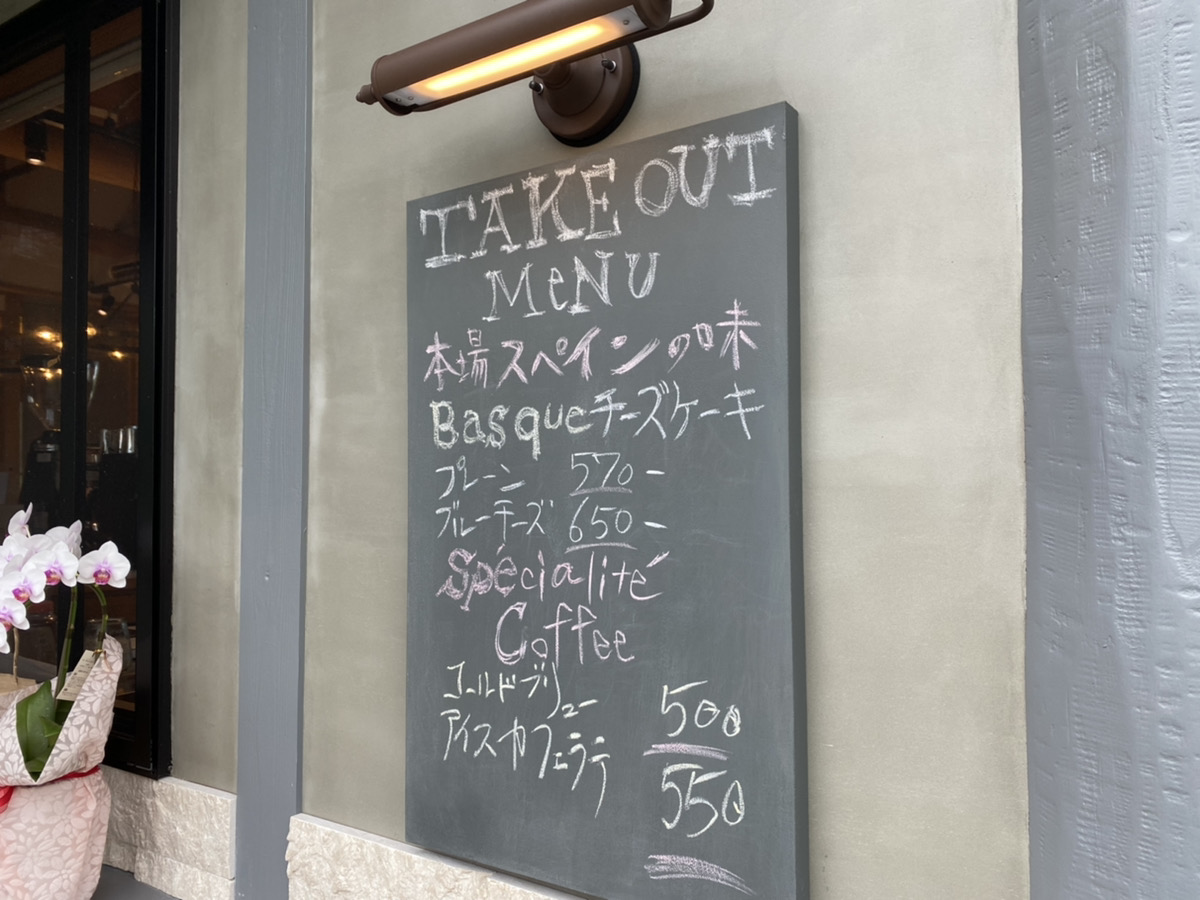 TAKE OUT
MeNU
本場スペインの味
Basqueチーズケーキ
プレーン 570-
ブルーチーズ 650-
Spécialité
Coffee
コールドブリュー 500
アイスカフェラテ 550